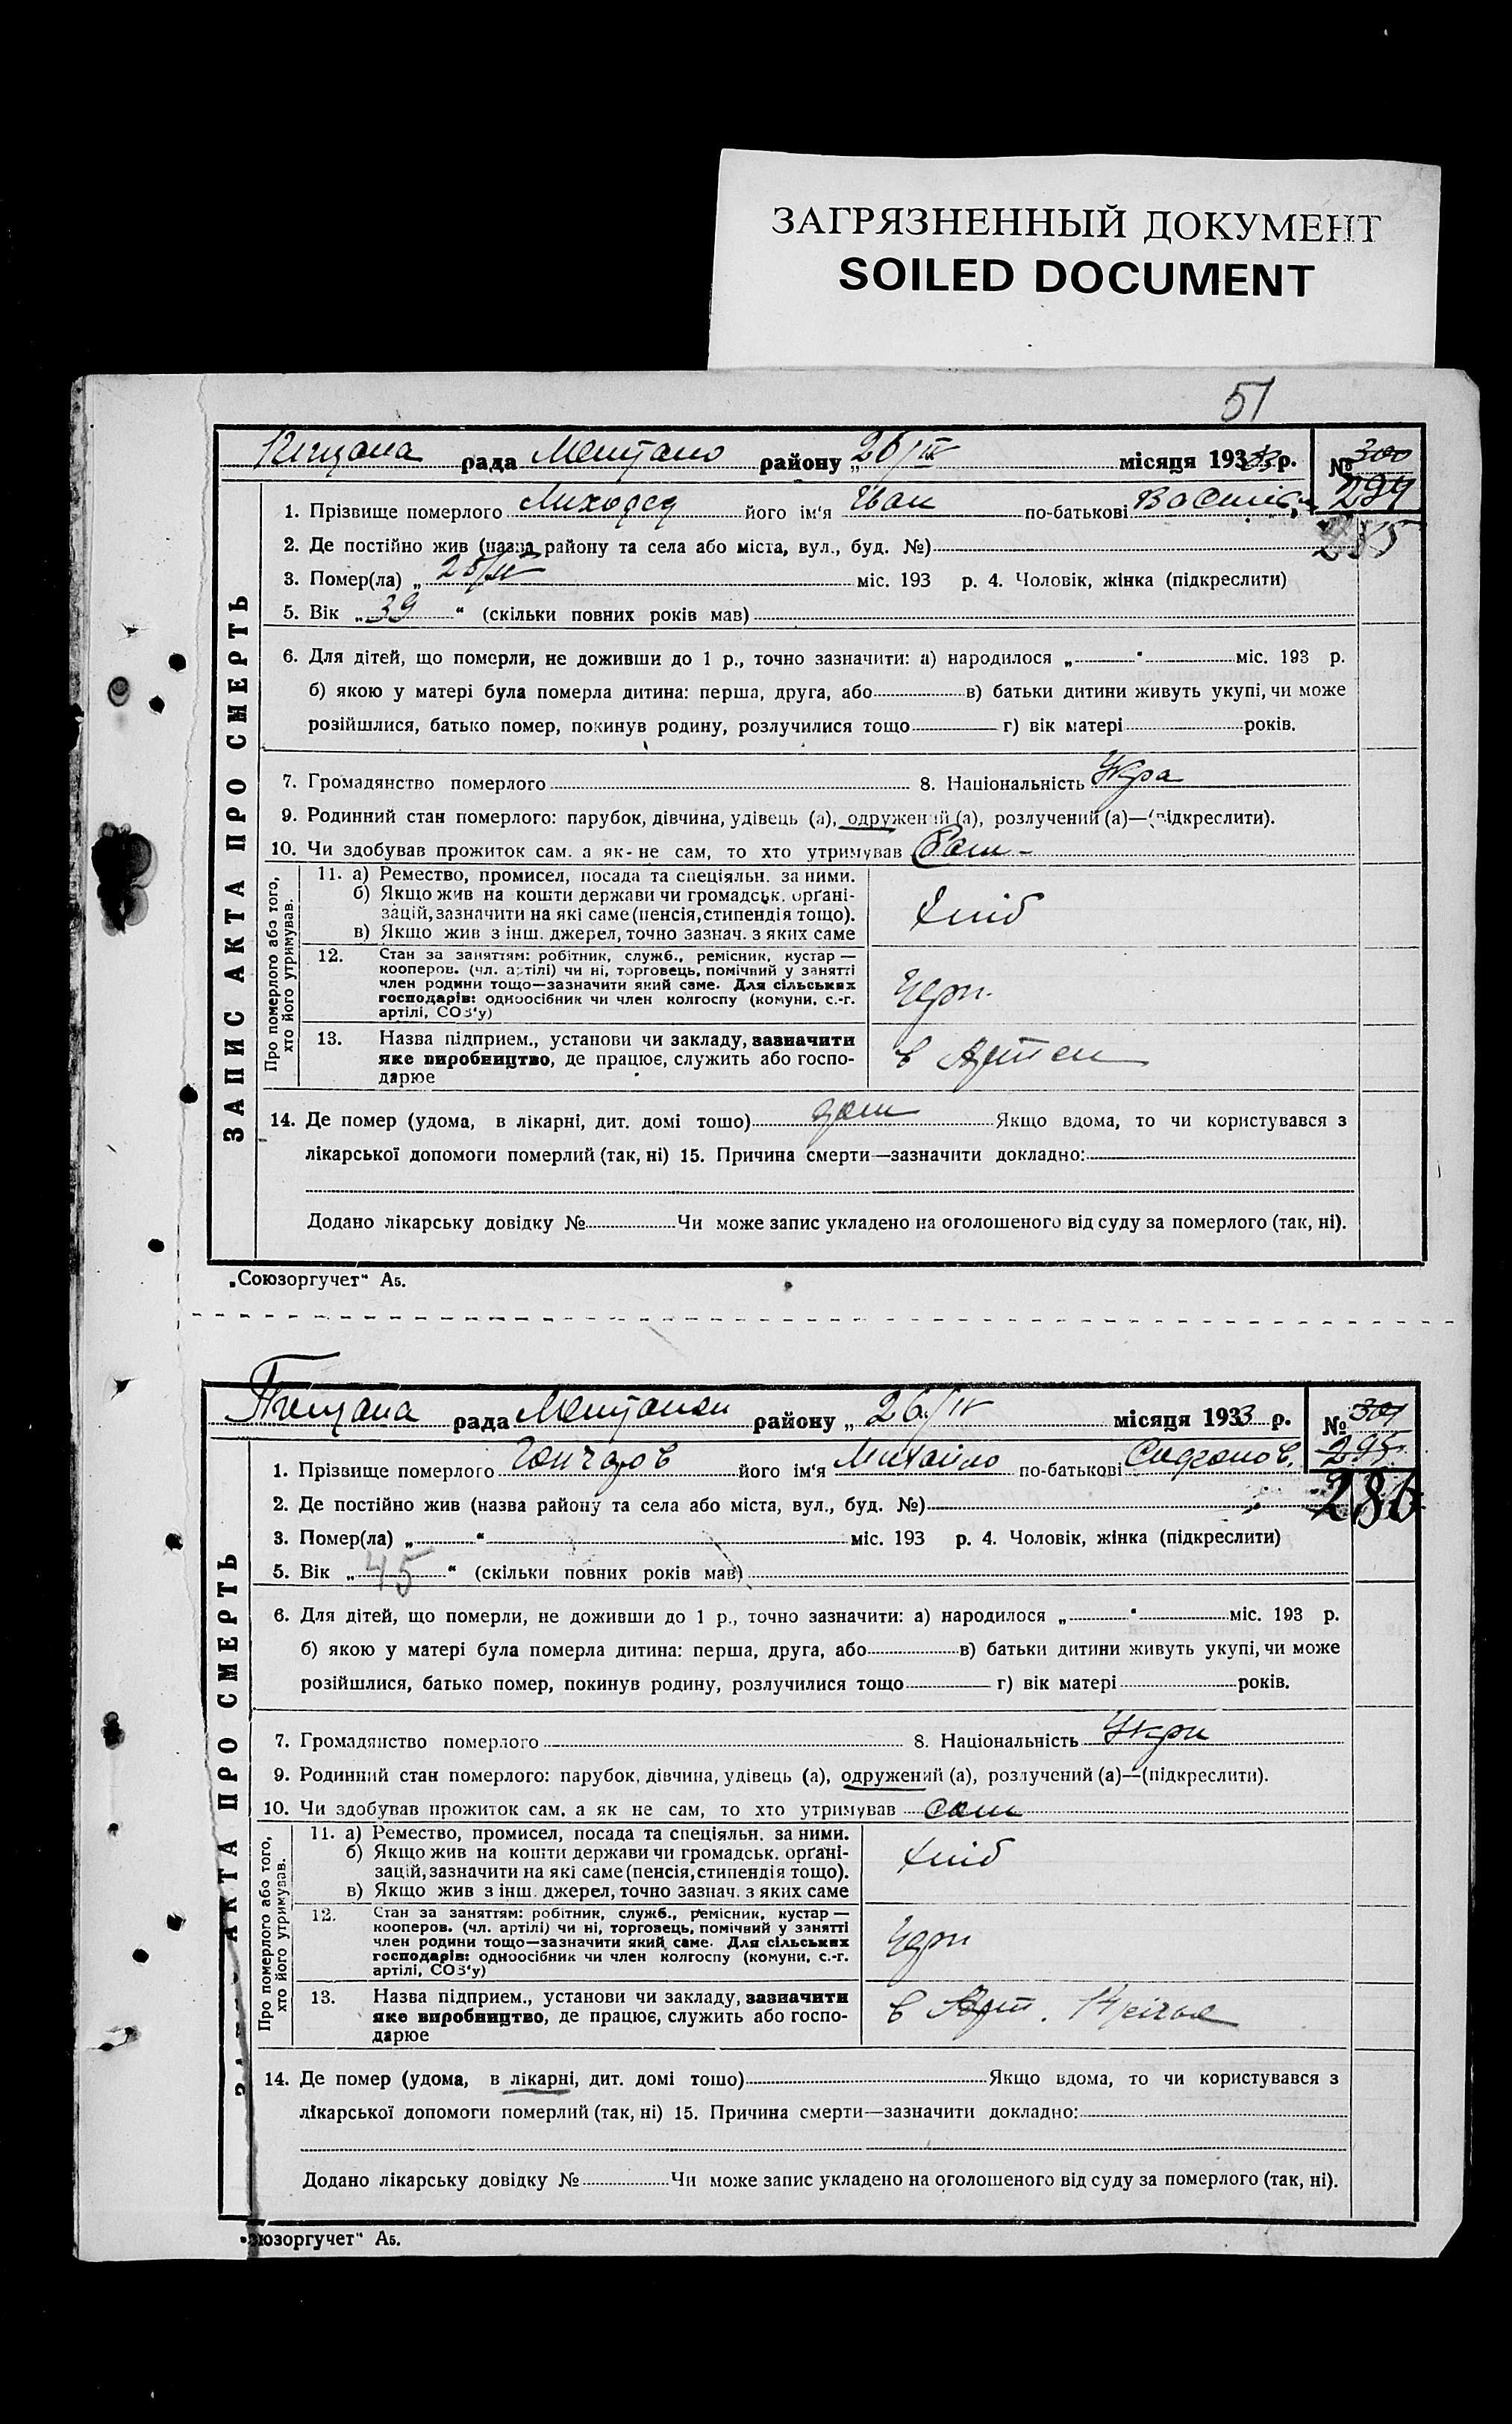 ЗАГРЯЗНЕННЫЙ ДОКУМЕНТ
SOILED DOCUMENT
51
рада району „26/IV місяця 1933 р. № 300
294
285
ЗАПИС АКТА ПРО СМЕРТЬ
1. Прізвище померлого його ім'я Іван по-батькові
2. Де постійно жив (назва району та села або міста, вул., буд. №)
3. Помер(ла) „ 25/IV міс. 193 р. 4. Чоловік, жінка (підкреслити)
5. Вік „ 39 “ (скільки повних років мав)
6. Для дітей, що померли, не доживши до 1 р., точно зазначити: а) народилося „ “ міс. 193 р.
б) якою у матері була померла дитина: перша, друга, або в) батьки дитини живуть укупі, чи може
розійшлися, батько помер, покинув родину, розлучилися тощо г) вік матері років.
7. Громадянство померлого 8. Національність Укра
9. Родинний стан померлого: парубок, дівчина, удівець (а), одружений (а), розлучений (а)—(підкреслити).
10. Чи здобував прожиток сам, а як-не сам, то хто утримував Сам -
Про померлого або того,
хто його утримував.
11. а) Ремество, промисел, посада та спеціяльн. за ними.
б) Якщо жив на кошти держави чи громадськ. орґані-
зацій, зазначити на які саме (пенсія, стипендія тощо).
в) Якщо жив з інш. джерел, точно зазнач. з яких саме
хліб
12. Стан за заняттям: робітник, служб., ремісник, кустар —
кооперов. (чл. артілі) чи ні, торговець, помічний у занятті
член родини тощо—зазначити який саме. Для сільських
господарів: одноосібник чи член колгоспу (комуни, с.-г.
артілі, СОЗ'у)
13. Назва підприєм., установи чи закладу, зазначити
яке виробництво, де працює, служить або госпо-
дарює
в
14. Де помер (удома, в лікарні, дит. домі тощо) дом Якщо вдома, то чи користувався з
лікарської допомоги померлий (так, ні) 15. Причина смерти—зазначити докладно:
Додано лікарську довідку № Чи може запис укладено на оголошеного від суду за померлого (так, ні).
„Союзоргучет“ А5.
рада району „ 26/IV місяця 1933 р. № 301
295
286
ЗАПИС АКТА ПРО СМЕРТЬ
1. Прізвище померлого Гончаров його ім'я Михайло по-батькові
2. Де постійно жив (назва району та села або міста, вул., буд. №)
3. Помер(ла) „ “ міс. 193 р. 4. Чоловік, жінка (підкреслити)
5. Вік „ 45 “ (скільки повних років мав)
6. Для дітей, що померли, не доживши до 1 р., точно зазначити: а) народилося „ “ міс. 193 р.
б) якою у матері була померла дитина: перша, друга, або в) батьки дитини живуть укупі, чи може
розійшлися, батько помер, покинув родину, розлучилися тощо г) вік матері років.
7. Громадянство померлого 8. Національність Укри
9. Родинний стан померлого: парубок, дівчина, удівець (а), одружений (а), розлучений (а)—(підкреслити).
10. Чи здобував прожиток сам, а як не сам, то хто утримував сам
Про померлого або того,
хто його утримував.
11. а) Ремество, промисел, посада та спеціяльн. за ними.
б) Якщо жив на кошти держави чи громадськ. орґані-
зацій, зазначити на які саме (пенсія, стипендія тощо).
в) Якщо жив з інш. джерел, точно зазнач. з яких саме
хліб
12. Стан за заняттям: робітник, служб., ремісник, кустар —
кооперов. (чл. артілі) чи ні, торговець, помічний у занятті
член родини тощо—зазначити який саме. Для сільських
господарів: одноосібник чи член колгоспу (комуни, с.-г.
артілі, СОЗ'у)
13. Назва підприєм., установи чи закладу, зазначити
яке виробництво, де працює, служить або госпо-
дарює
в Арт.
14. Де помер (удома, в лікарні, дит. домі тощо) Якщо вдома, то чи користувався з
лікарської допомоги померлий (так, ні) 15. Причина смерти—зазначити докладно:
Додано лікарську довідку № Чи може запис укладено на оголошеного від суду за померлого (так, ні).
юзоргучет“ А5.